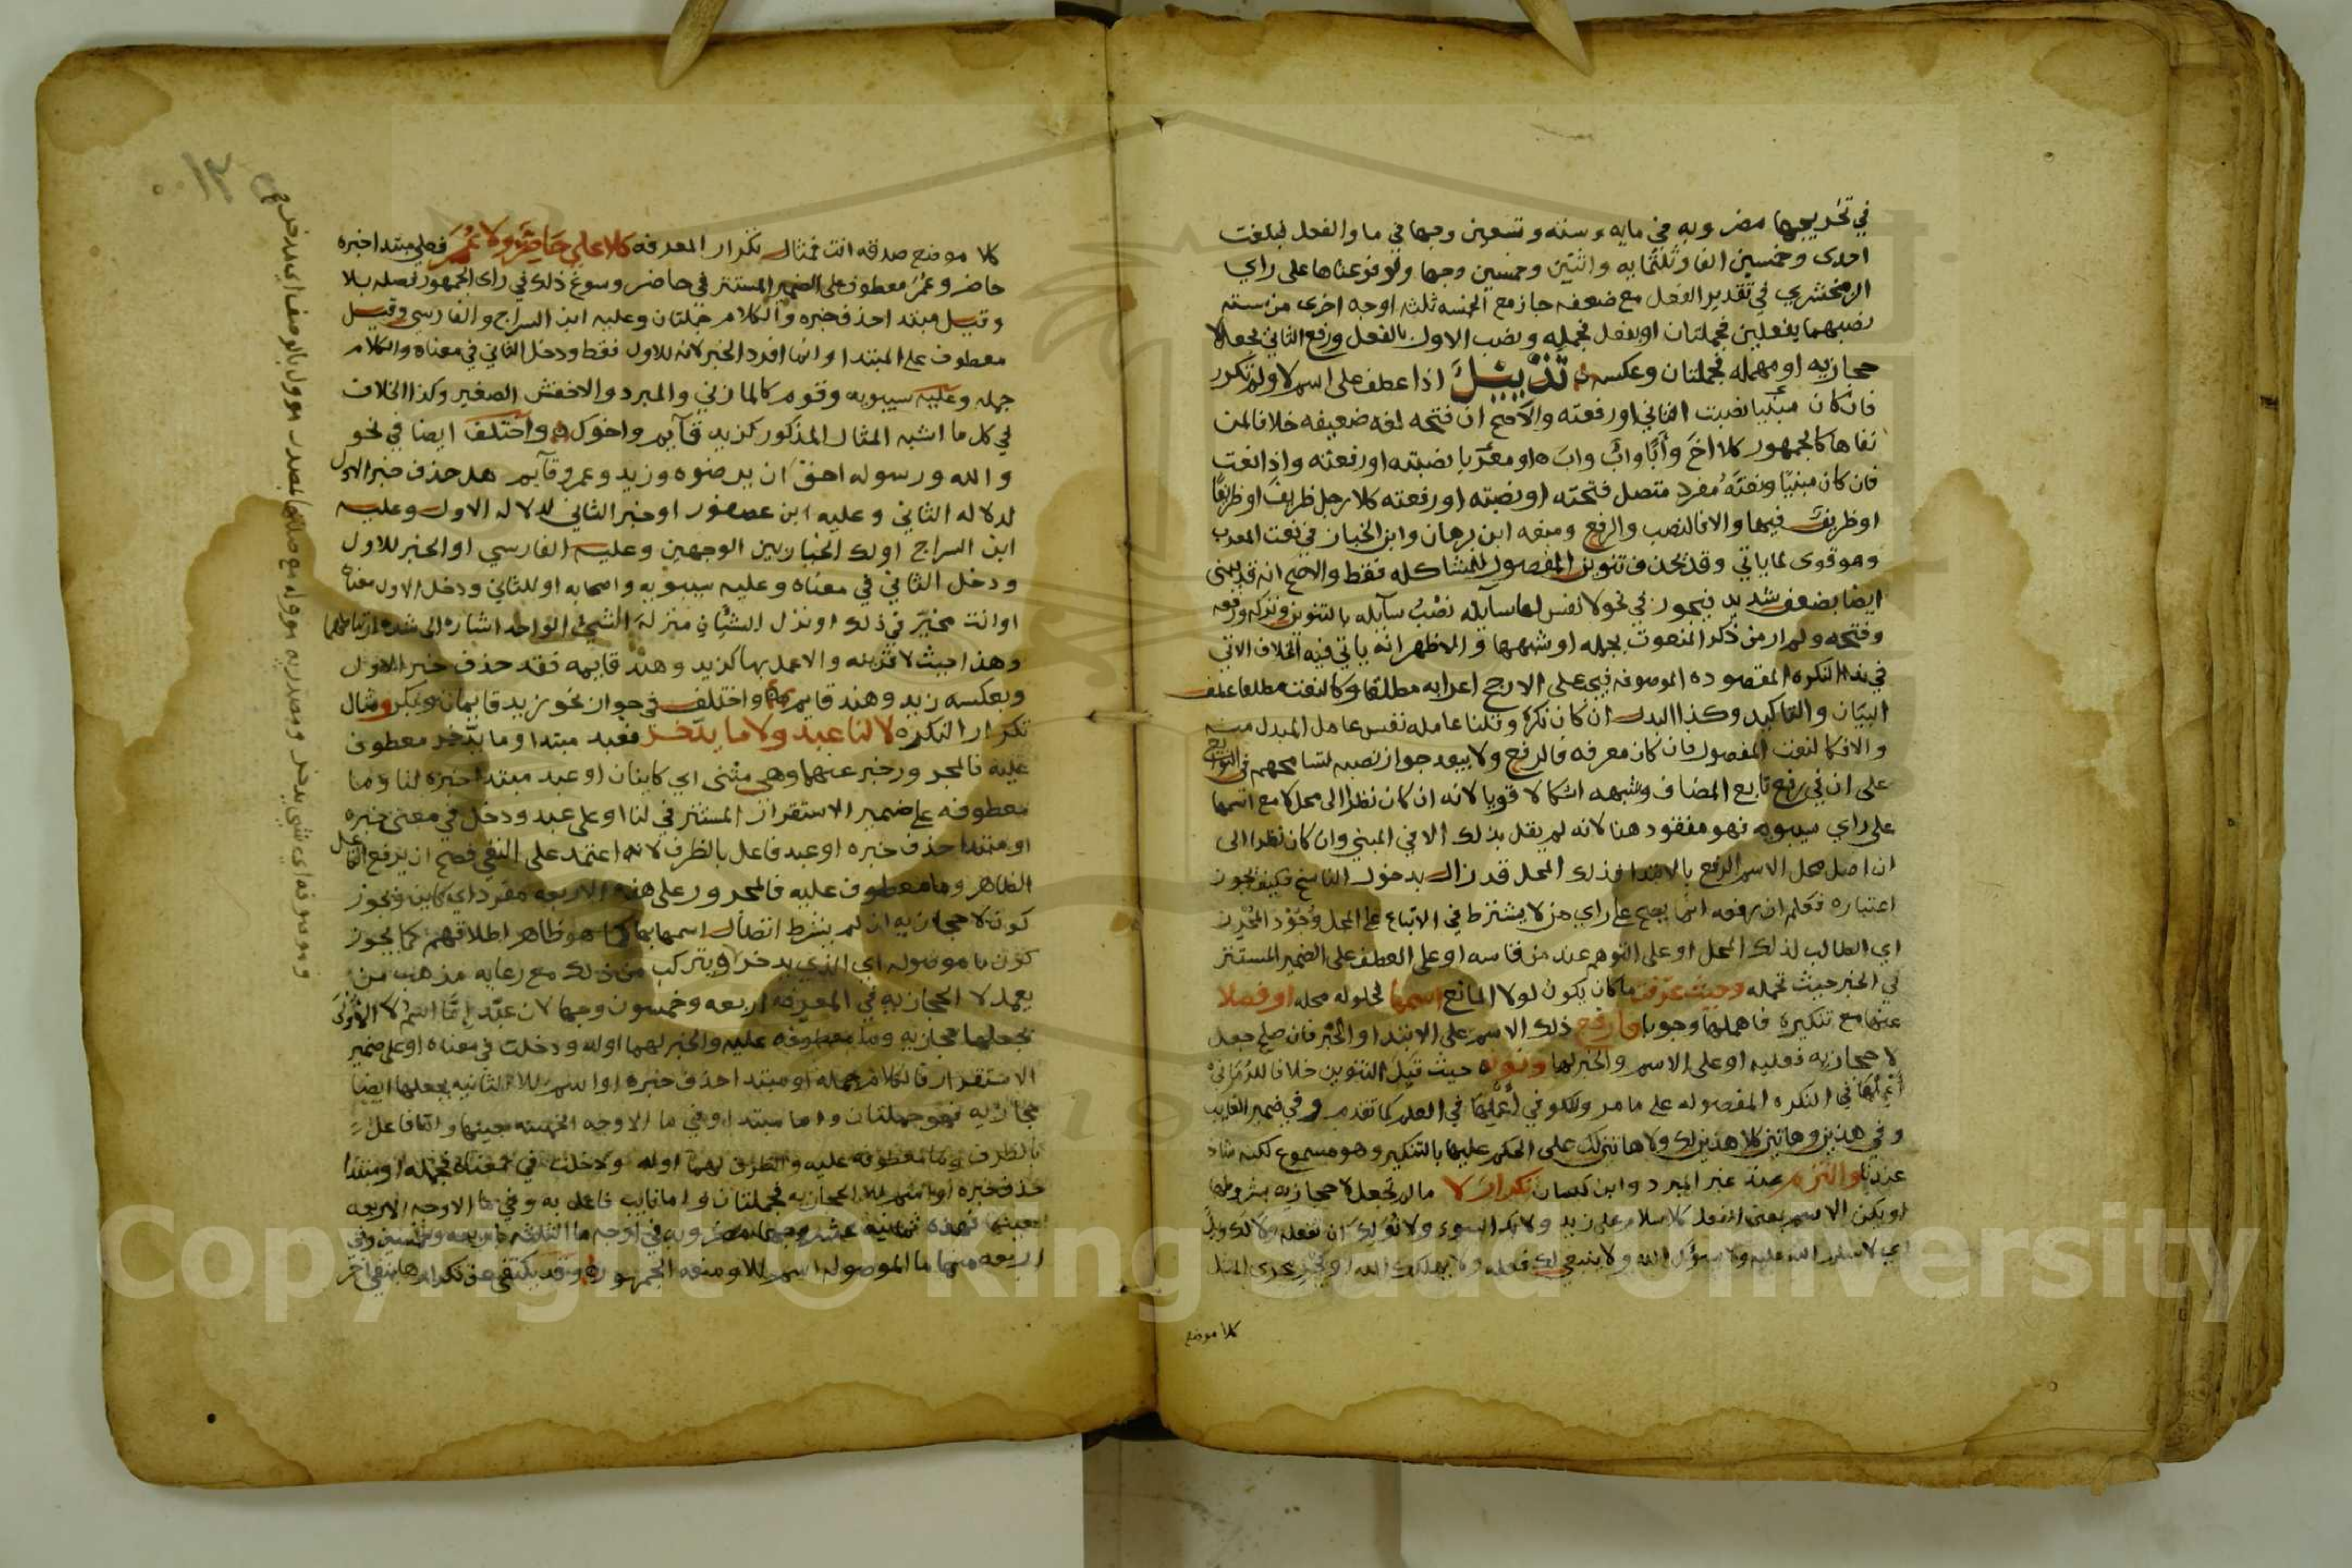 في تخريجها مضروبه في مايه وسته وتسعين وجها في ما والفعل لبلغت
احدى وخمسين الفا وثلثمايه واثنين وخمسين وجها ولو فرعناها على راي
الزمخشري في تقدير الفعل مع ضعفه جاز مع الخمسه ثلثه اوجه اخرى من سته
نصبهما بفعلين فجملتان او بفعل فجمله ونصب الاول بالفعل ورفع الثاني بجعل لا
حجازيه او مهمله فجملتان وعكسه تذييل اذا عطف على اسم لا ولم تكرر
فان كان مبنيا نصبت الثاني او رفعته والاصح ان فتحه لغه ضعيفه خلافا لمن
نفاها كالجمهور كلا اخ وأبا واب واب او معربا نصبته او رفعته واذا نعت
فان كان مبنيا ونعته مفرد متصل فتحته او نصبته او رفعته كلا رجل ظريف او ظريفا
او ظريف فيها والا فالنصب والرفع ومنعه ابن برهان وابن الخباز في نعت المعرب
وهو قوى لما ياتي وقد يحذف تنوين المفصول للمشاكله فقط والاصح انه قد يبنى
ايضا بضعف شديد فيجوز في نحو لا نفس لها سآيله نصب سآيله بالتنوين وتركه ورفعه
وفتحه ولم ار من ذكر المنعوت بجمله او شبهها والاظهر انه ياتي فيه الخلاف الاتي
في ندا النكره المقصوده الموصوفه فيجي على الارجح اعرابه مطلقا وكالنعت مطلقا عطف
البيان والتاكيد وكذا البدل ان كان نكرة وقلنا عامله نفس عامل المبدل منه
والا فكالنعت المفصول فان كان معرفه فالرفع ولا يبعد جواز نصبه لتسامحهم في التوابع
على ان في رفع تابع المضاف وشبهه اشكالا قويا لانه ان كان نظرا الى محل لا مع اسمها
على راي سيبويه فهو مفقود هنا لانه لم يقل بذلك الا في المبني وان كان نظرا الى
ان اصل محل الاسم الرفع بالابتدا فذلك المحل قد زال بدخول الناسخ فكيف يجوز
اعتباره فعلم ان رفعه انما يصح على راي من لا يشترط في الاتباع على المحل وجود المحرز
اي الطالب لذلك المحل او على التوهم عند من قاسه او على العطف على الضمير المستتر
في الخبر حيث تحمله وحيث عرفت ما كان يكون لولا المانع اسمها لحلوله محله او فصلا
عنها مع تنكيره فاهملها وجوبا وارفع ذلك الاسم على الابتدا والخبر فان صلح جعل
لا حجازيه فعليه او على الاسم والخبر لها ونونه حيث قبل التنوين خلافا للرماني
في النكره المفصوله على ما مر في العلم كما تقدم وفي ضمير الغايب
وفي هذين وهاتين كلا هذين لك ولا هاتين لك على الحكم عليها بالتنكير وهو مسموع لكنه شاذ
عندنا والتزم عند غير المبرد وابن كيسان تكرار لا ما لم تجعل لا حجازيه بشروطها
او يكن الاسم بمعنى الفعل كلا سلام على زيد ولا بك السوء ولا نولك ان تفعله
اي لا سلم الله عليه ولا سؤك الله ولا ينبغي لك فعله ولا يهلكك الله او يجر مجرى المثل
كلا موضع
١٢
كلا موضع صدقه انت فمثال تكرار المعرفه كلا علي حاضر ولا عمر فعلي مبتدا خبره
حاضر وعمر معطوف على الضمير المستتر في حاضر وسوغ ذلك في راى الجمهور فصله بلا
وقيل مبتدا حذف خبره والكلام جملتان وعليه ابن السراج والفارسي وقيل
معطوف على المبتدا وانما افرد الخبر لانه للاول فقط ودخل الثاني في معناه والكلام
جمله وعليه سيبويه وقوم كالمازني والمبرد والاخفش الصغير وكذا الخلاف
في كل ما اشبه المثال المذكور كزيد قآيم واخوك واختلف ايضا في نحو
والله ورسوله احق ان يرضوه وزيد وعمرو قآيم هل حذف خبر الاول
لدلاله الثاني وعليه ابن عصفور او خبر الثاني لدلاله الاول وعليه
ابن السراج اولك الخيار بين الوجهين وعليه الفارسي او الخبر للاول
ودخل الثاني في معناه وعليه سيبويه واصحابه او للثاني ودخل الاول معناه
او انت مخير في ذلك او نزل الشيان منزلة الشي الواحد اشاره الى شده ارتباطهما
وهذا حيث لا قرينه والا عمل بها كزيد وهند قايمه فقد حذف خبر الاول
وبعكسه زيد وهند قايم واختلف في جواز نحو زيد قايمان وبكر ومثال
تكرار النكره لا لنا عبد ولا ما يدخر فعبد مبتدا وما يدخر معطوف
عليه فالمجرور خبر عنهما وهي مثنى اي كاينان او عبد مبتدا خبره لنا وما
معطوفه على ضمير الاستقرار المستتر في لنا او على عبد ودخل في معنى خبره
او مبتدا حذف خبره او عبد فاعل بالظرف لانه اعتمد على النفي فصح ان يرفع الفاعل
الظاهر وما معطوف عليه فالمجرور على هذه الاربعه مفرد اي كاين ويجوز
كون لا حجازيه ان لم يشترط اتصال اسمها بها كما هو ظاهر اطلاقهم كما يجوز
كون ما موصوله اي الذي يدخر ويتركب من ذلك مع رعايه مذهب من
يعمل لا الحجازيه في المعرفه اربعه وخمسون وجها لان عبد إمّا اسم لا الاولى
بجعلها حجازيه وما معطوفه عليه والخبر لهما اوله ودخلت في معناه او على ضمير
الاستقرار فالكلام جمله او مبتدا حذف خبره او اسم للا الثانيه بجعلها ايضا
حجازيه فهو جملتان واما مبتدا وفي ما الاوجه الخمسه حينها واما فاعل
بالظرف وما معطوفه عليه والظرف لهما اوله ودخلت في معناه فجمله او مبتدا
حذف خبره او اسم للا الحجازيه فجملتان واما نايب فاعل به وفي ما الاوجه الاربعه
بعينها فهذه ثمانيه عشر وجها مضروبه في اوجه ما الثلثه باربعه وخمسين وفي
اربعه منها ما الموصوله اسم للا ومنعه الجمهور وقد يكتفى عن تكرارها بنفي اخر